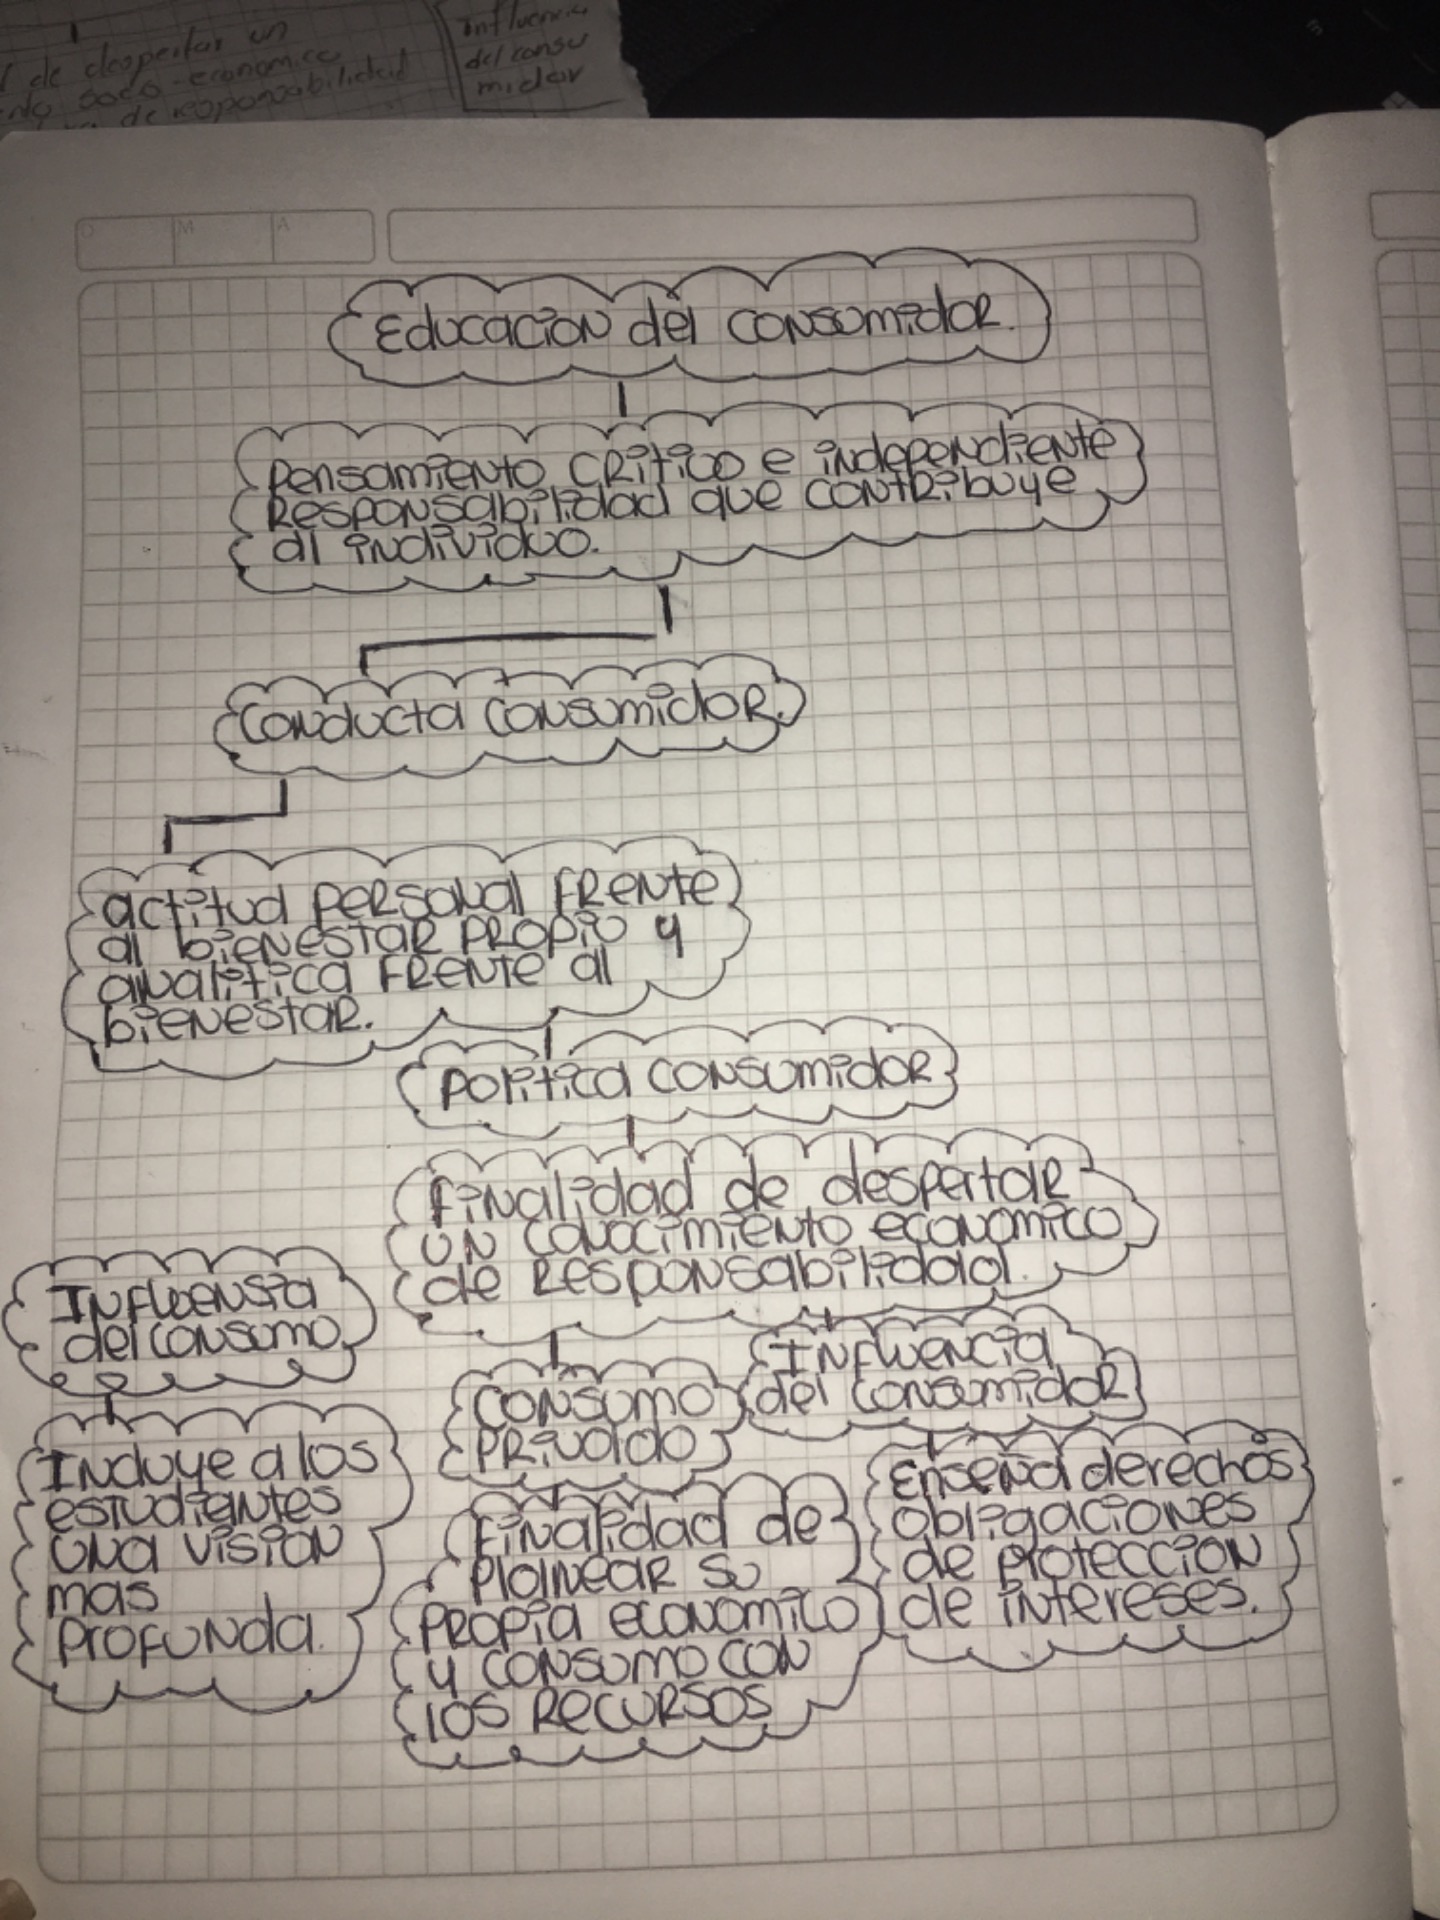 de despertar un
socio-economico
de responsabilidad
influencia
del consu
midor
D M A
Educacion del consumidor.
Pensamiento critico e independiente
Responsabilidad que contribuye
al individuo.
Conducta consumidor.
actitud personal frente
al bienestar propio y
analitica frente al
bienestar.
Politica consumidor
Finalidad de despertar
un conocimiento economico
de responsabilidad.
Influensia
del consumo
Incluye a los
estudiantes
una vision
mas
profunda.
Consumo
privado
Finalidad de
planear su
propia economico
y consumo con
los recursos
Influencia
del consumidor
Enseña derechos
obligaciones
de proteccion
de intereses.